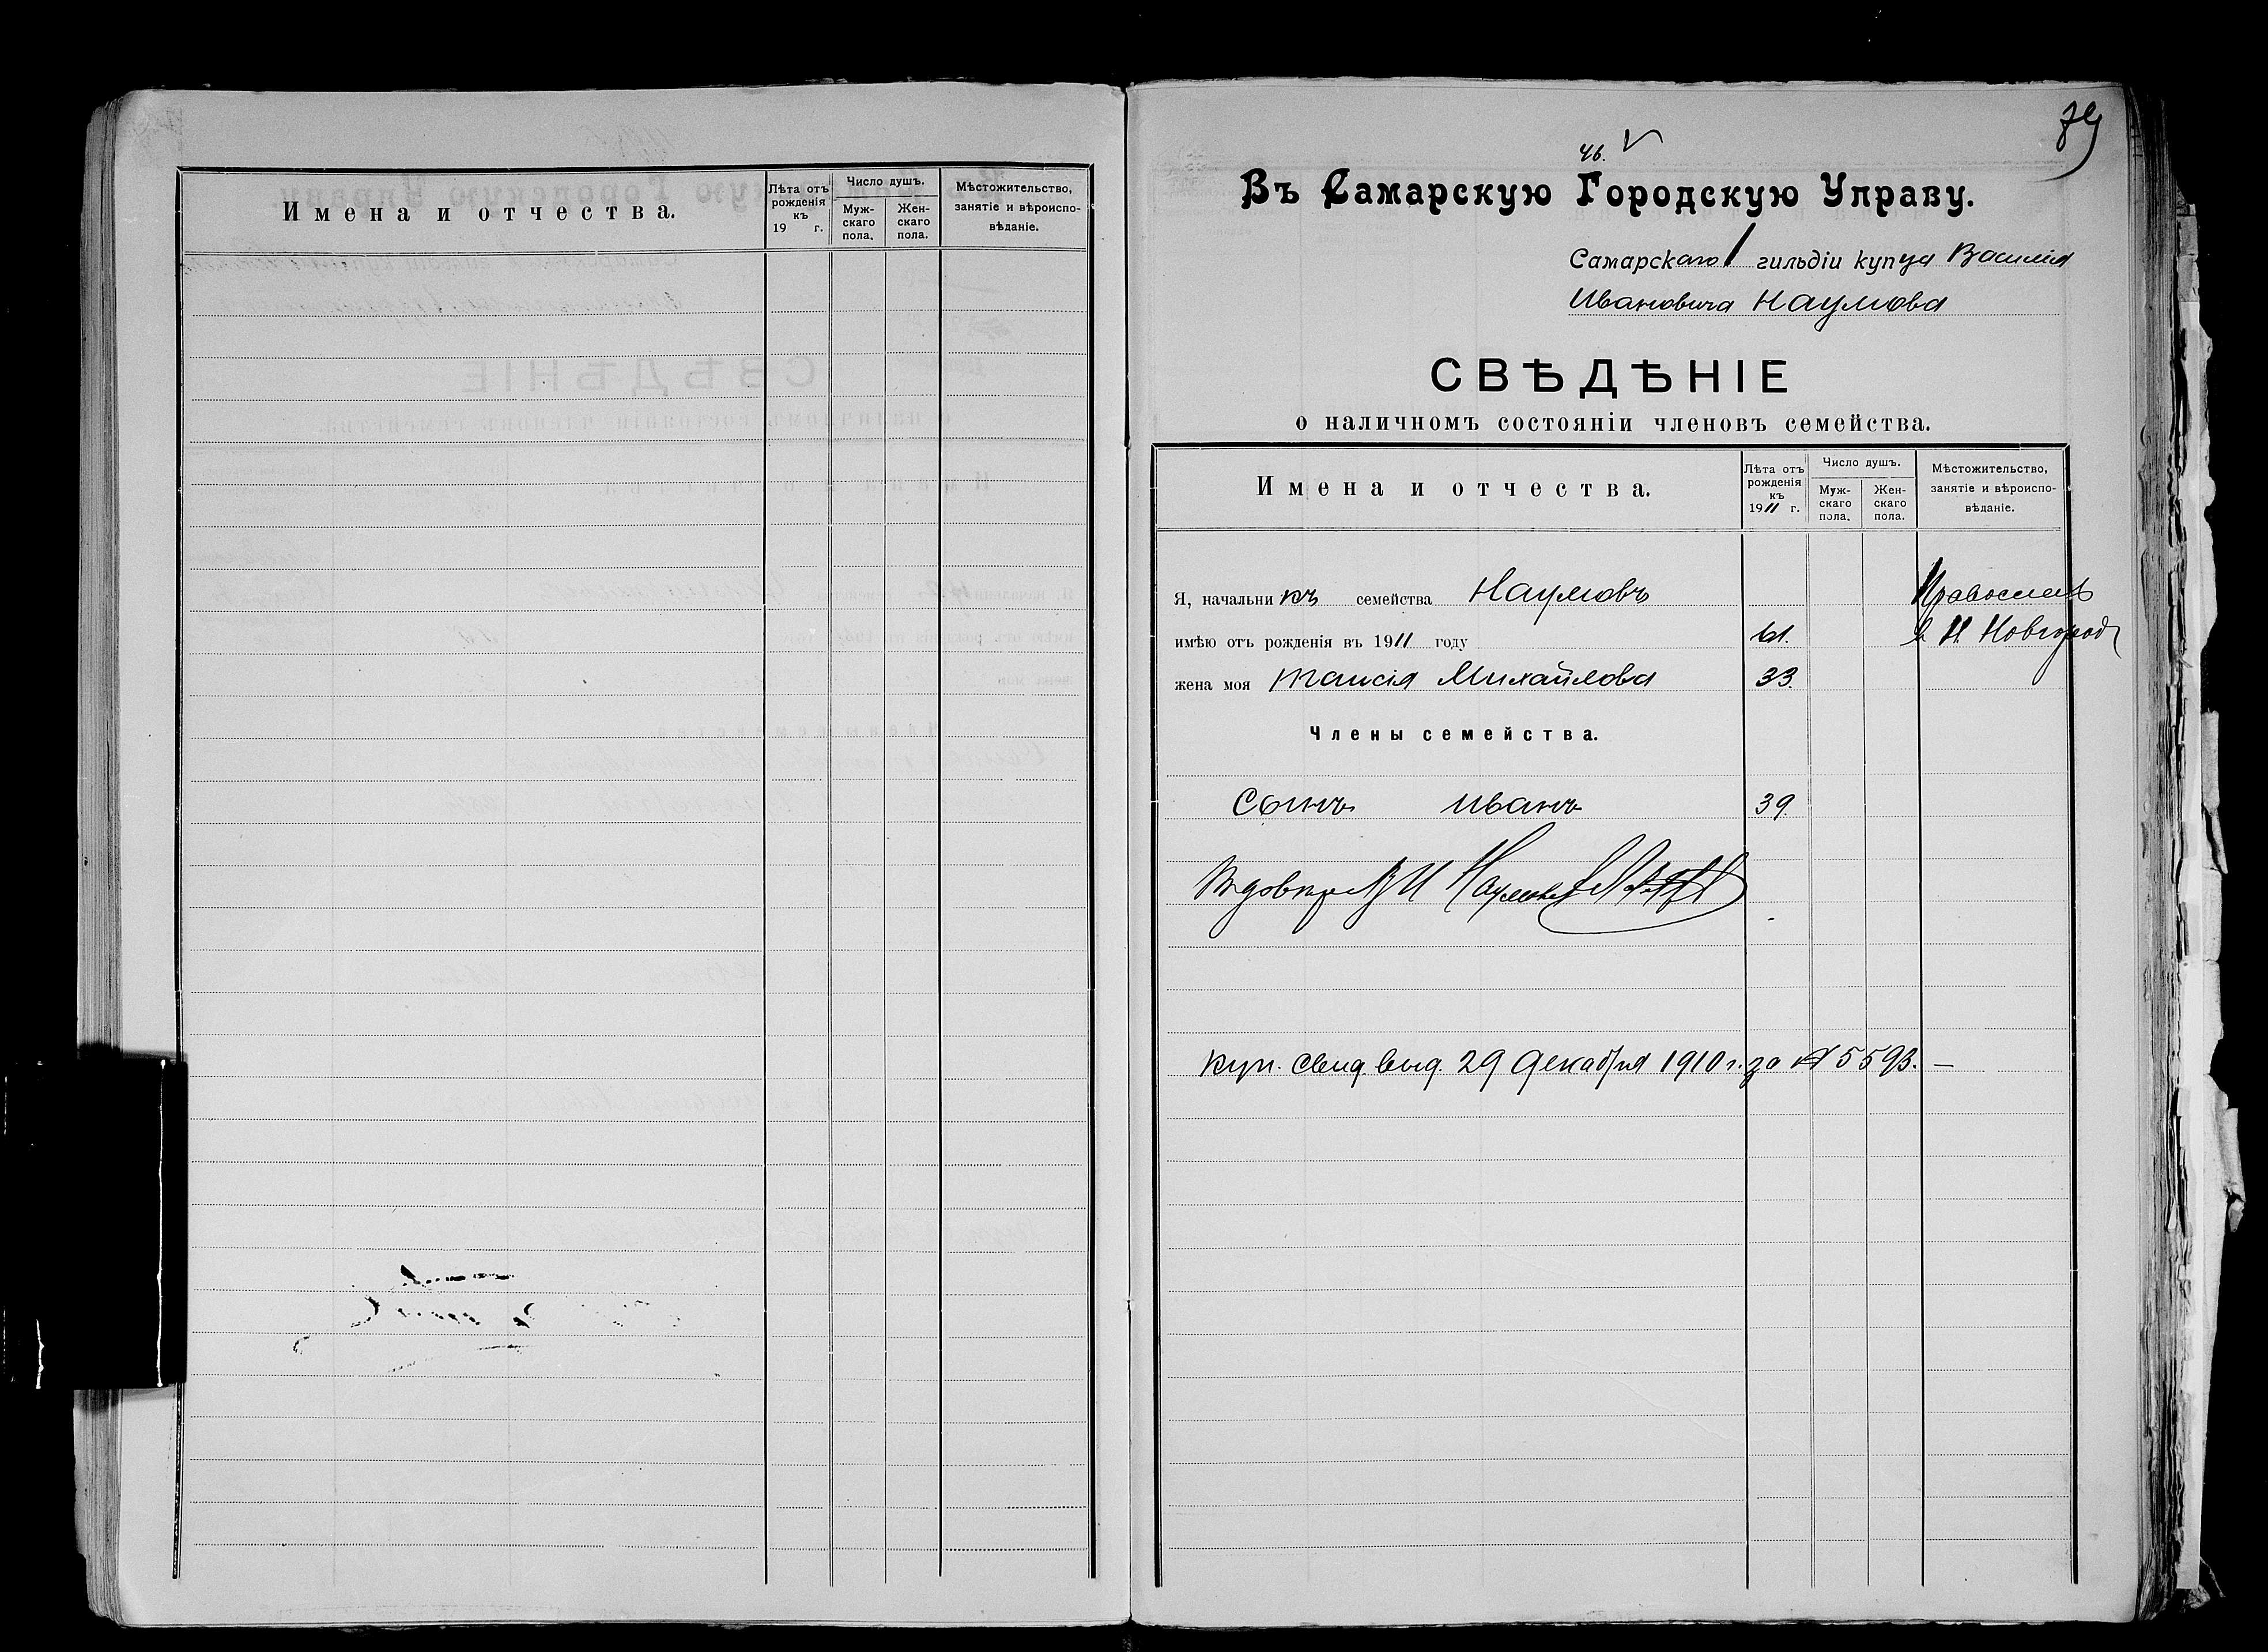 Имена и отчества.
Лѣта отъ рожденія къ 19 г.
Число душъ.
Муж-скаго пола.
Жен-скаго пола.
Мѣстожительство, занятіе и вѣроиспо-вѣданіе.
79
46.
Въ Самарскую Городскую Управу.
Самарскаго 1 гильдіи купца Василія
Ивановича Наумова
СВѢДѢНІЕ
о наличномъ состояніи членовъ семейства.
Имена и отчества.
Лѣта отъ рожденія къ 1911 г.
Число душъ.
Муж-скаго пола.
Жен-скаго пола.
Мѣстожительство, занятіе и вѣроиспо-вѣданіе.
Я, начальникъ семейства Наумовъ
имѣю отъ рожденія въ 1911 году 61. Н Новгород
жена моя Таисія Михайлова 33.
Члены семейства.
Сынъ Иванъ 39.
Куп. свид. выд. 29 декабря 1910 г. за № 5593. —